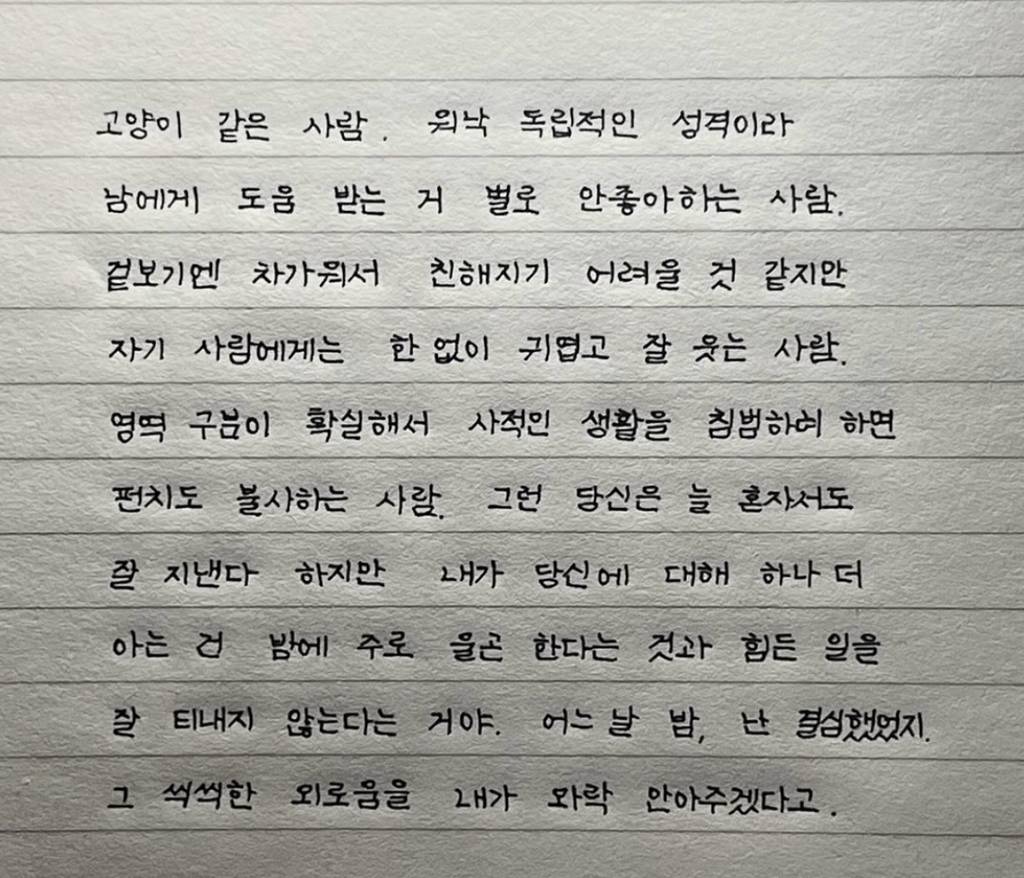 고양이 같은 사람. 워낙 독립적인 성격이라
남에게 도움 받는 거 별로 안좋아하는 사람.
겉보기엔 차가워서 친해지기 어려울 것 같지만
자기 사람에게는 한 없이 귀엽고 잘 웃는 사람.
영역 구분이 확실해서 사적인 생활을 침범하려 하면
펀치도 불사하는 사람. 그런 당신은 늘 혼자서도
잘 지낸다 하지만 내가 당신에 대해 하나 더
아는 건 밤에 주로 울곤 한다는 것과 힘든 일을
잘 티내지 않는다는 거야. 어느 날 밤, 난 결심했었지.
그 씩씩한 외로움을 내가 와락 안아주겠다고.